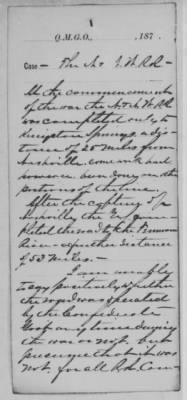 Q.M.G.O., , 187 .
Case — The N & N.W.R.R. —
At the commencement
of the war the N & N.W. RR
was completed only to
Kingston Springs, a dis-
tance of 25 miles from
Nashville, some work
however been done on other
portions of the line.
After the capture of
Nashville the U.S. Gov. com-
pleted the road to the Tennessee
River — a further distance
of 53 Miles. —
I am unable
to say positively whether
the road was operated
by the Confederate
Govt or by them during
the war or not, but
presume that it was
not, for all R.R. Com-